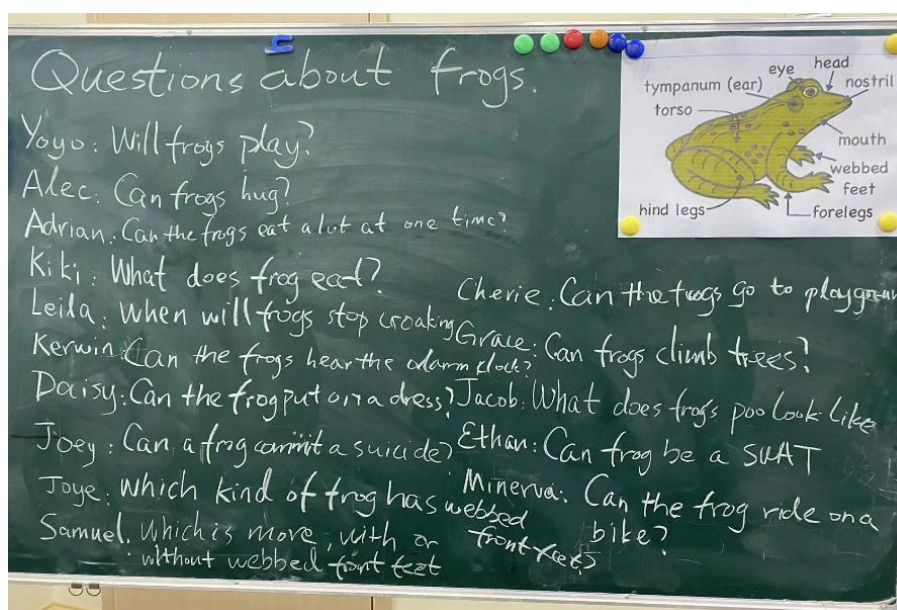 Questions about frogs.
Yoyo: Will frogs play?
Alec: Can frogs hug?
Adrian: Can the frogs eat a lot at one time?
Kiki: What does frog eat?
Leila: When will frogs stop croaking
Kerwin: Can the frogs hear the alarm clock?
Daisy: Can the frog put on a dress?
Joey: Can a frog commit a suicide?
Joye: which kind of frog has webbed
front feet?
Samuel. Which is more, with or
without webbed front feet
Cherie: Can the frogs go to playgroun
Grace: Can frogs climb trees?
Jacob: What does frogs poo look like
Ethan: Can frog be a SWAT
Minerva: Can the frog ride on a
bike?
eye
head
tympanum (ear)
nostril
torso
mouth
webbed
feet
hind legs
forelegs